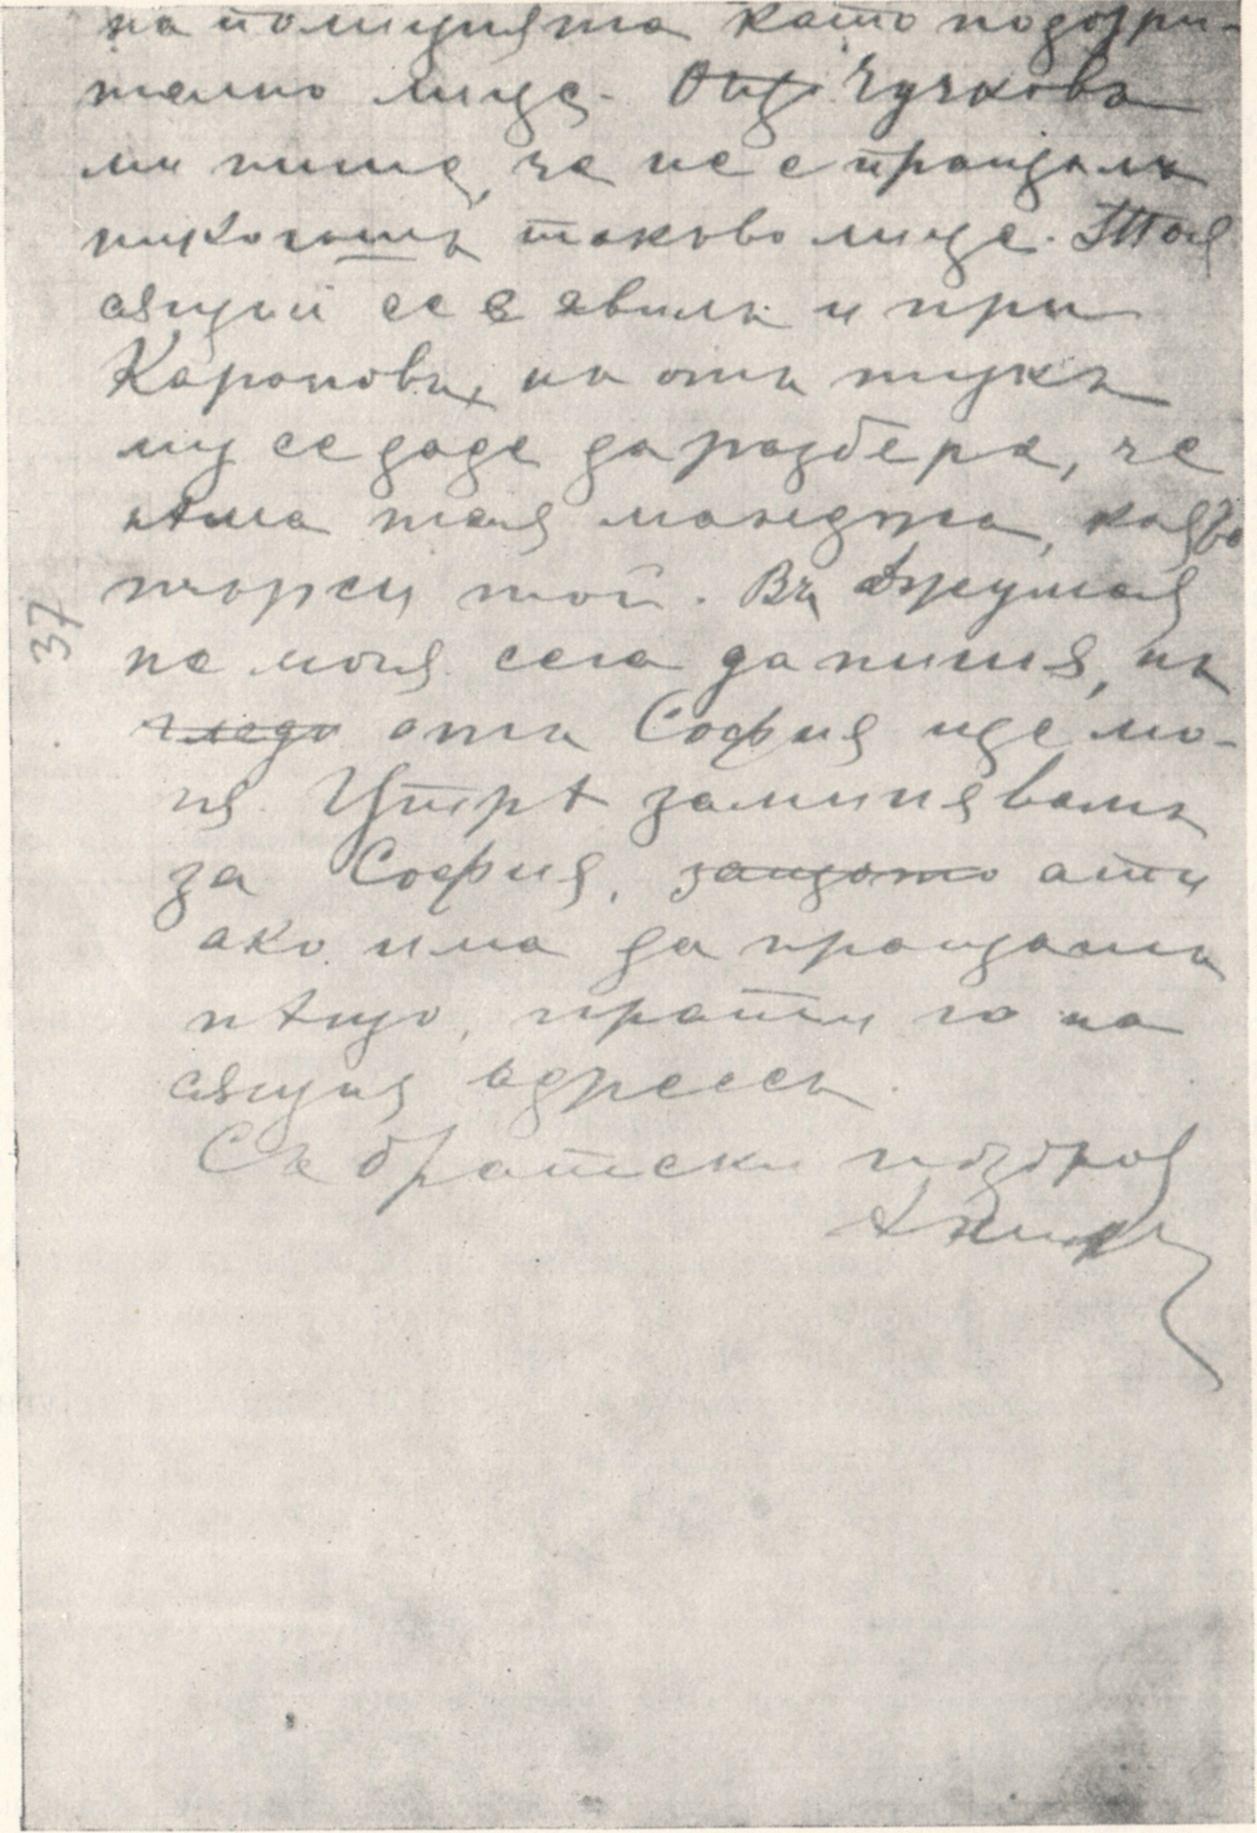 на полицията като подозри-
телно лице. Отъ Чучковъ
ми пише, че не е пращалъ
никогашъ таково лице. Тоя
сѫщий се е явилъ и при
Карановъ, но отъ тукъ
му се даде да разбере, че
нѣма тая манджа, каквото
торси той. Въ Джумая
не моия сега да пишѫ, но
гледо отъ София ще мо-
ия. Утрѣ заминявамъ
за София, защото ати
ако има да пращашъ
нѣщо, прати го на
сѫщия адресъ.
Съ братски поздрав
37